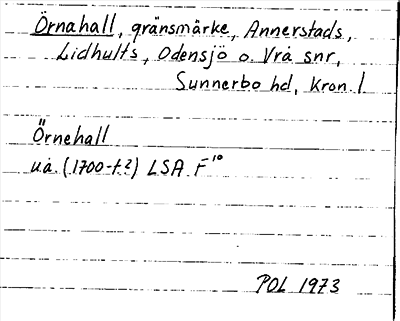 Örnahall, gränsmärke, Annerstads,
Lidhults, Odensjö o. Vrå snr,
Sunnerbo hd, Kron. l.
Örnehall
u.å. (1700-t.?) LSA F¹⁰
POL 1973